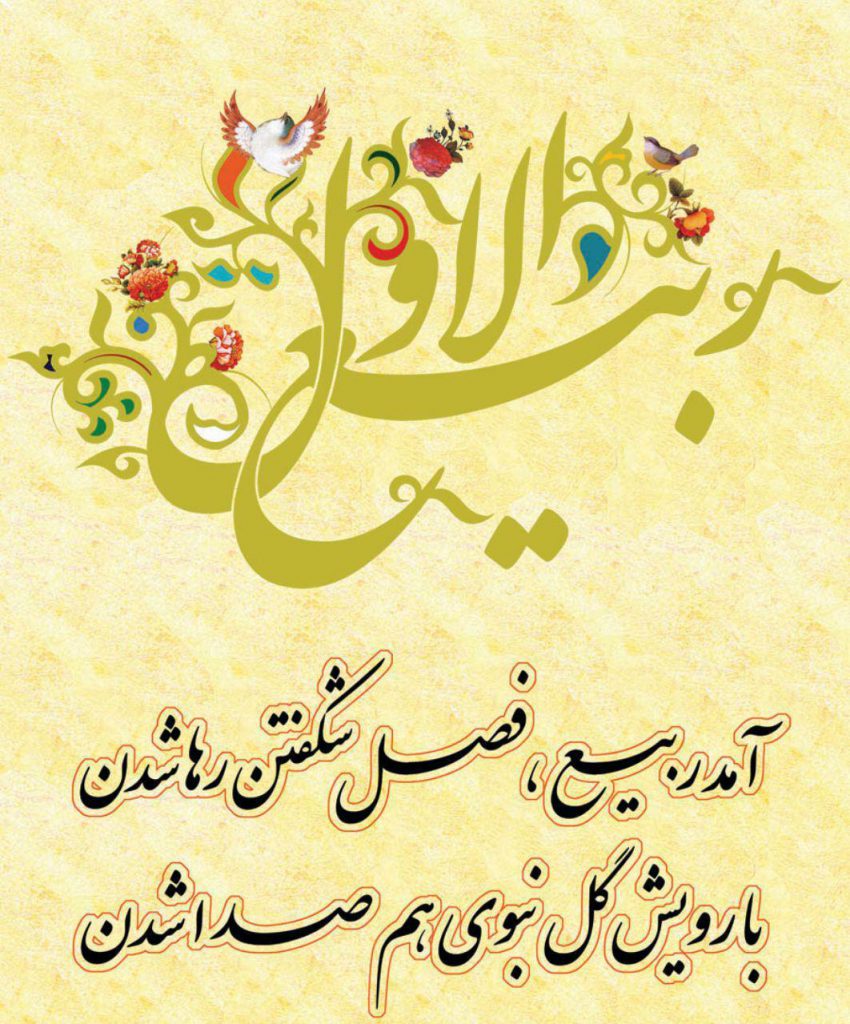 ربیع الاول
آمد ربیع ، فصل شکفتن رها شدن
با رویش گل نبوی هم صدا شدن